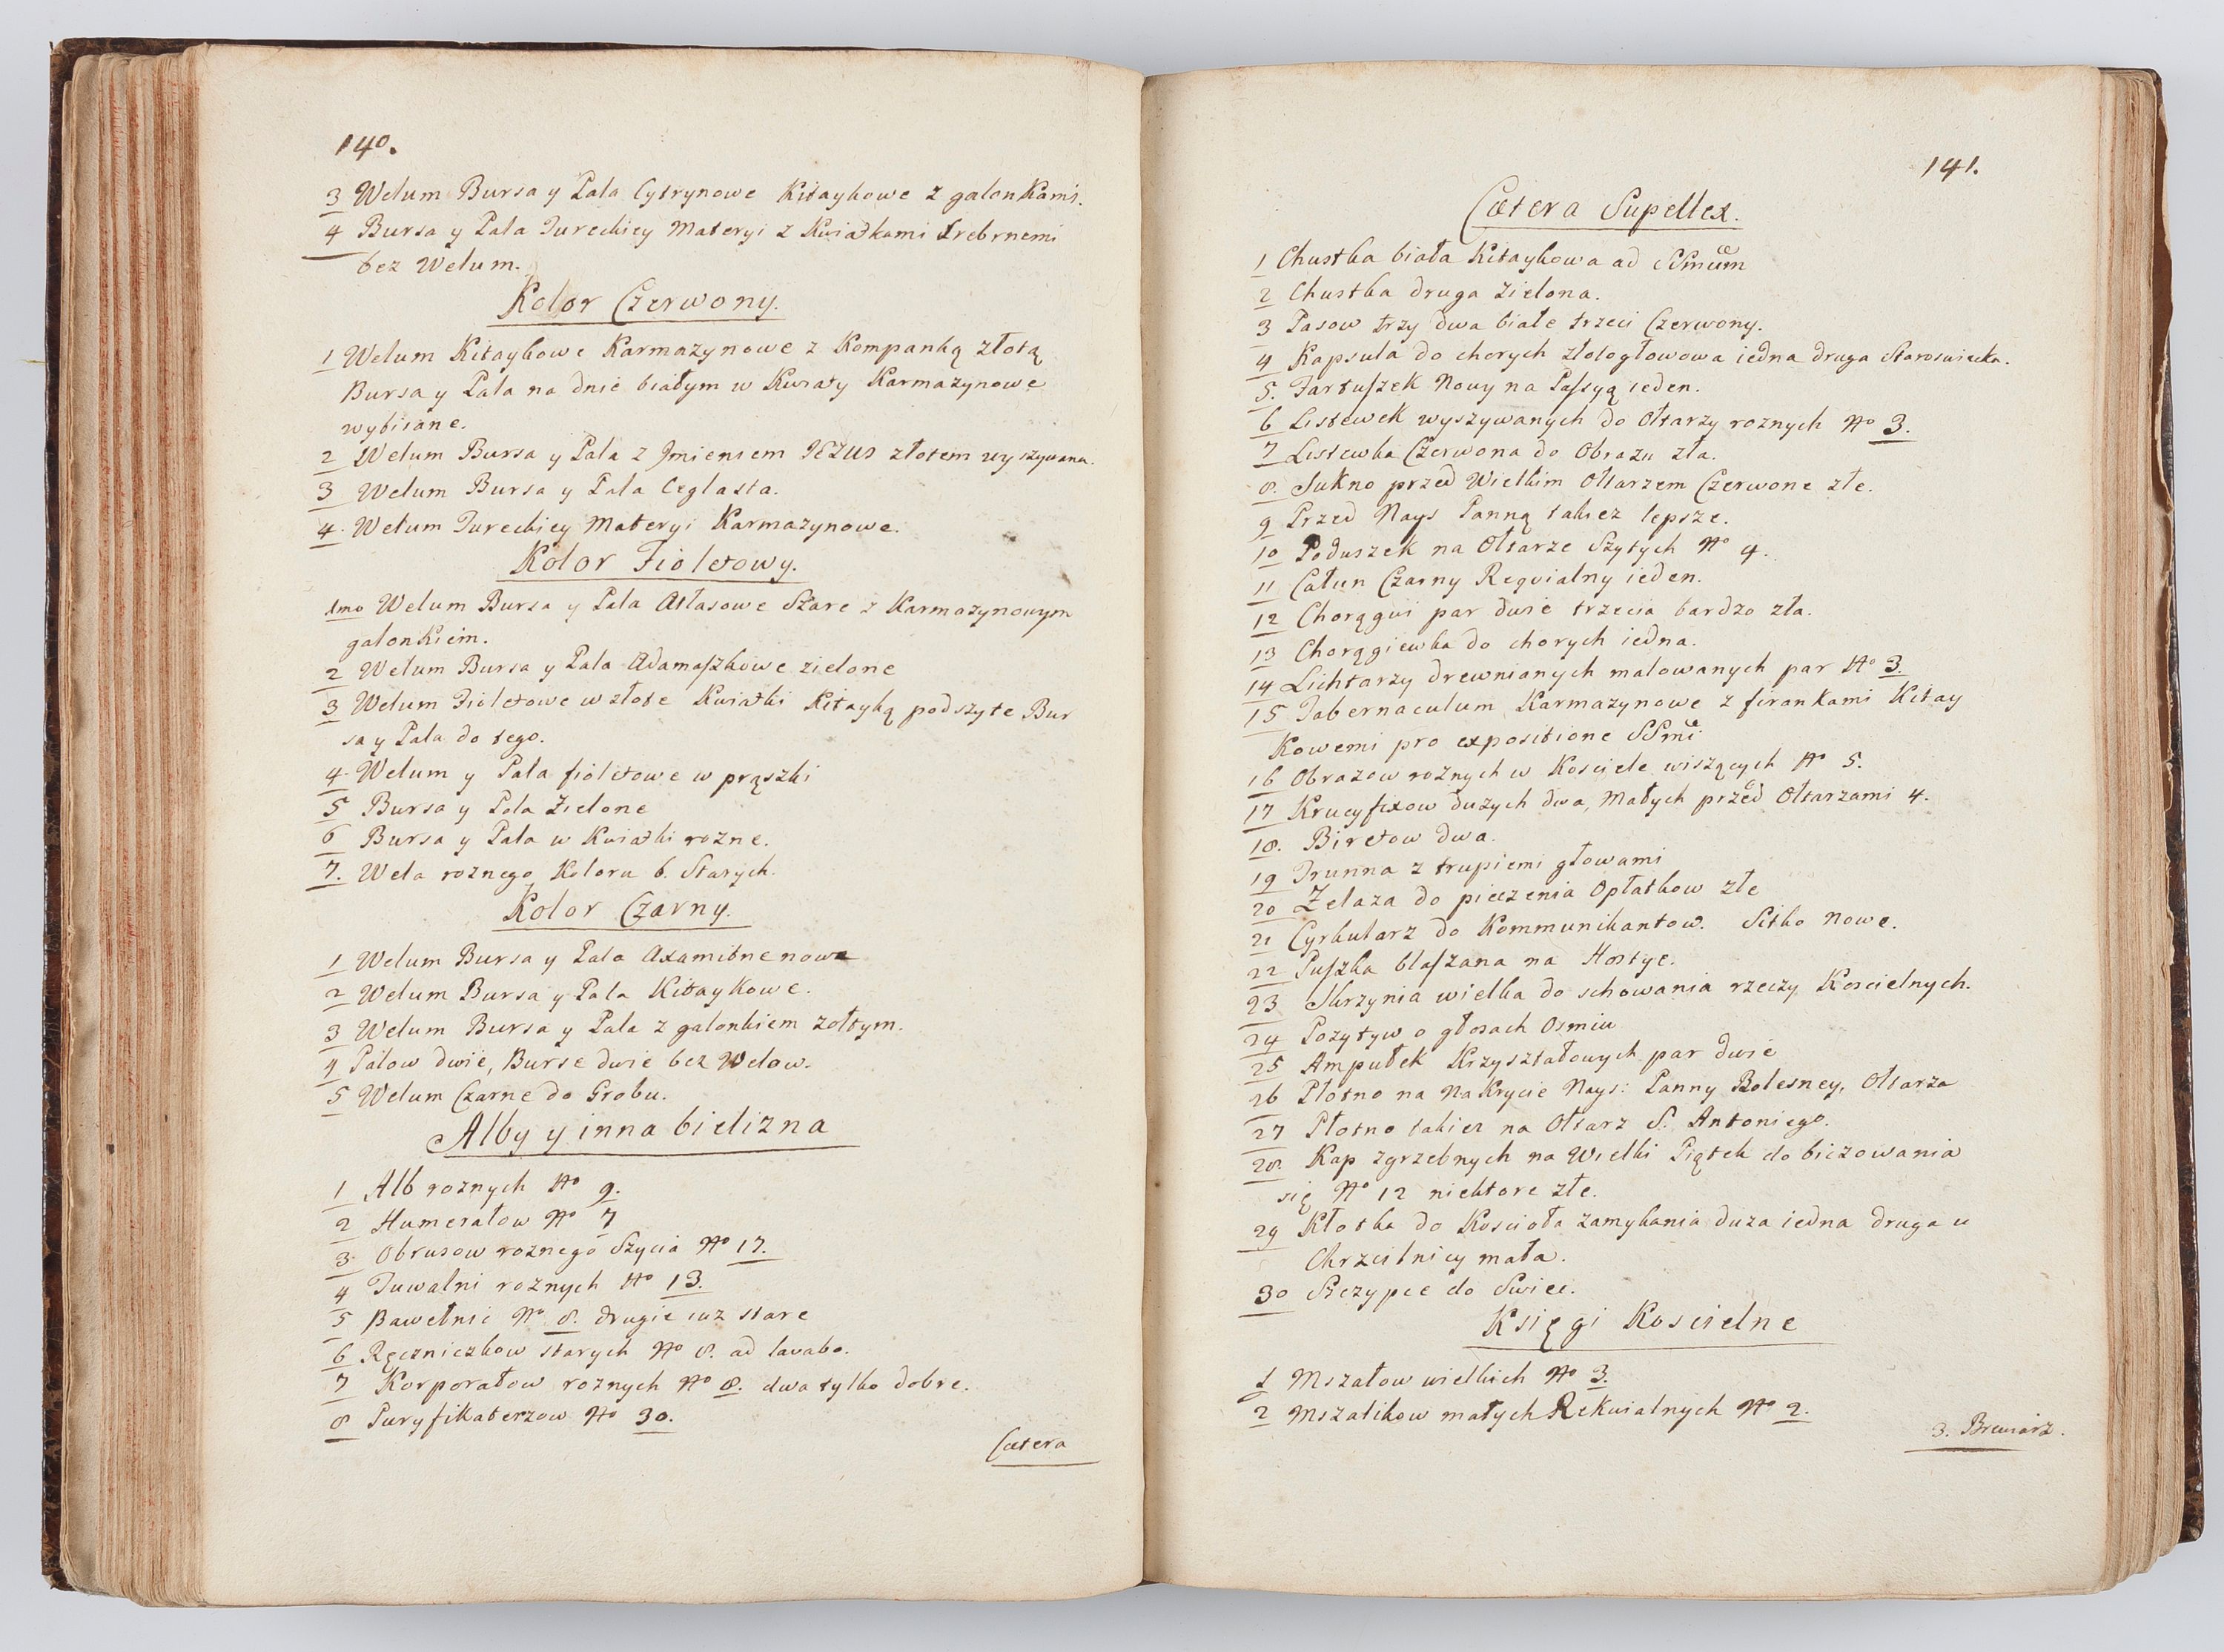 140.
3 Welum Bursa y Pala Cytrynowe Kitaykowe z galonkami.
4 Bursa y Pala Tureckiey Materyi z Kwiatkami Srebrnemi
bez Welum.
Kolor Czerwony.
1 Welum Kitaykowe Karmazynowe z Kompanką złotą
Bursa y Pala na dnie białym w Kwiaty Karmazynowe
wybiiane.
2 Welum Bursa y Pala z Jmieniem JEZUS złotem wyszywana.
3 Welum Bursa y Pala Ceglasta.
4. Welum Tureckiey Materyi Karmazynowe.
Kolor Fioletowy.
1mo Welum Bursa y Pala Atłasowe Szare z Karmazynowym
galonkiem.
2 Welum Bursa y Pala Adamaszkowe zielone
3 Welum Fioletowe w złote Kwiatki Kitayką podszyte Bur
sa y Pala do tego.
4. Welum y Pala fioletowe w prążki
5 Bursa y Pala Zielone
6 Bursa y Pala w Kwiatki rozne.
7. Wela roznego Koloru 6. Starych.
Kolor Czarny.
1 Welum Bursa y Pala Axamitne nowe
2 Welum Bursa y Pala Kitaykowe.
3 Welum Bursa y Pala z galonkiem zołtym.
4 Palow dwie, Burse dwie bez Welow.
5 Welum Czarne do Grobu.
Alby y inna bielizna
1 Alb roznych No 9.
2 Humerałow No 7
3 Obrusow roznego Szycia No 17.
4 Tuwalni roznych No 13.
5 Bawełnic No 8. drugie iuz stare
6 Ręczniczkow starych No 8. ad lavabo.
7 Korporałow roznych No 8. dwa tylko dobre.
8 Puryfikaterzow No 30.
Cætera
141.
Cætera Supellex.
1 Chustka biała Kitaykowa ad SSmum
2 Chustka druga zielona.
3 Pasow trzy dwa białe trzeci Czerwony.
4 Kapsula do chorych złotogłowowa iedna druga Staroswiecka.
5. Fartuszek Nowy na Passyą ieden.
6 Listewek wyszywanych do Ołtarzy roznych No 3.
7 Listewka Czerwona do Obrazu zła.
8. Sukno przed Wielkim Ołtarzem Czerwone złe.
9 Przed Nays Panną takiez lepsze.
10 Poduszek na Ołtarze Szytych No 4.
11 Całun Czarny Reqvialny ieden.
12 Chorągwi par dwie trzecia bardzo zła.
13 Chorągiewka do chorych iedna.
14 Lichtarzy drewnianych malowanych par No 3.
15 Tabernaculum Karmazynowe z firankami Kitay
Kowemi pro expositione SSmi
16 Obrazow roznych w Kosciele wiszących No 5.
17 Krucyfixow duzych dwa, Małych przed Ołtarzami 4.
18. Biretow dwa.
19 Trunna z trupiemi głowami
20 Zelaza do pieczenia Opłatkow złe
21 Cyrkularz do Kommunikantow. Sitko nowe.
22 Puszka blaszana na Hostye.
23 Skrzynia wielka do schowania rzeczy Koscielnych.
24 Pozytyw o głosach Osmiu
25 Ampułek Krzyształowych par dwie
26 Płotno na Nakrycie Nays: Panny Bolesney, Ołtarza
27 Płotno takiez na Ołtarz S. Antoniego.
28. Kap zgrzebnych na Wielki Piątek do biczowania
się No 12 niektore złe.
29 Kłotka do Kościoła zamykania duza iedna druga u
Chrzcilnicy mała.
30 Szczypce do Swiec.
Księgi Koscielne
1 Mszałow wielkich No 3.
2 Mszalikow małych Rekwialnych No 2.
3. Brewiarz.